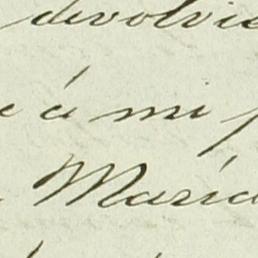 devolvie
á mi
María